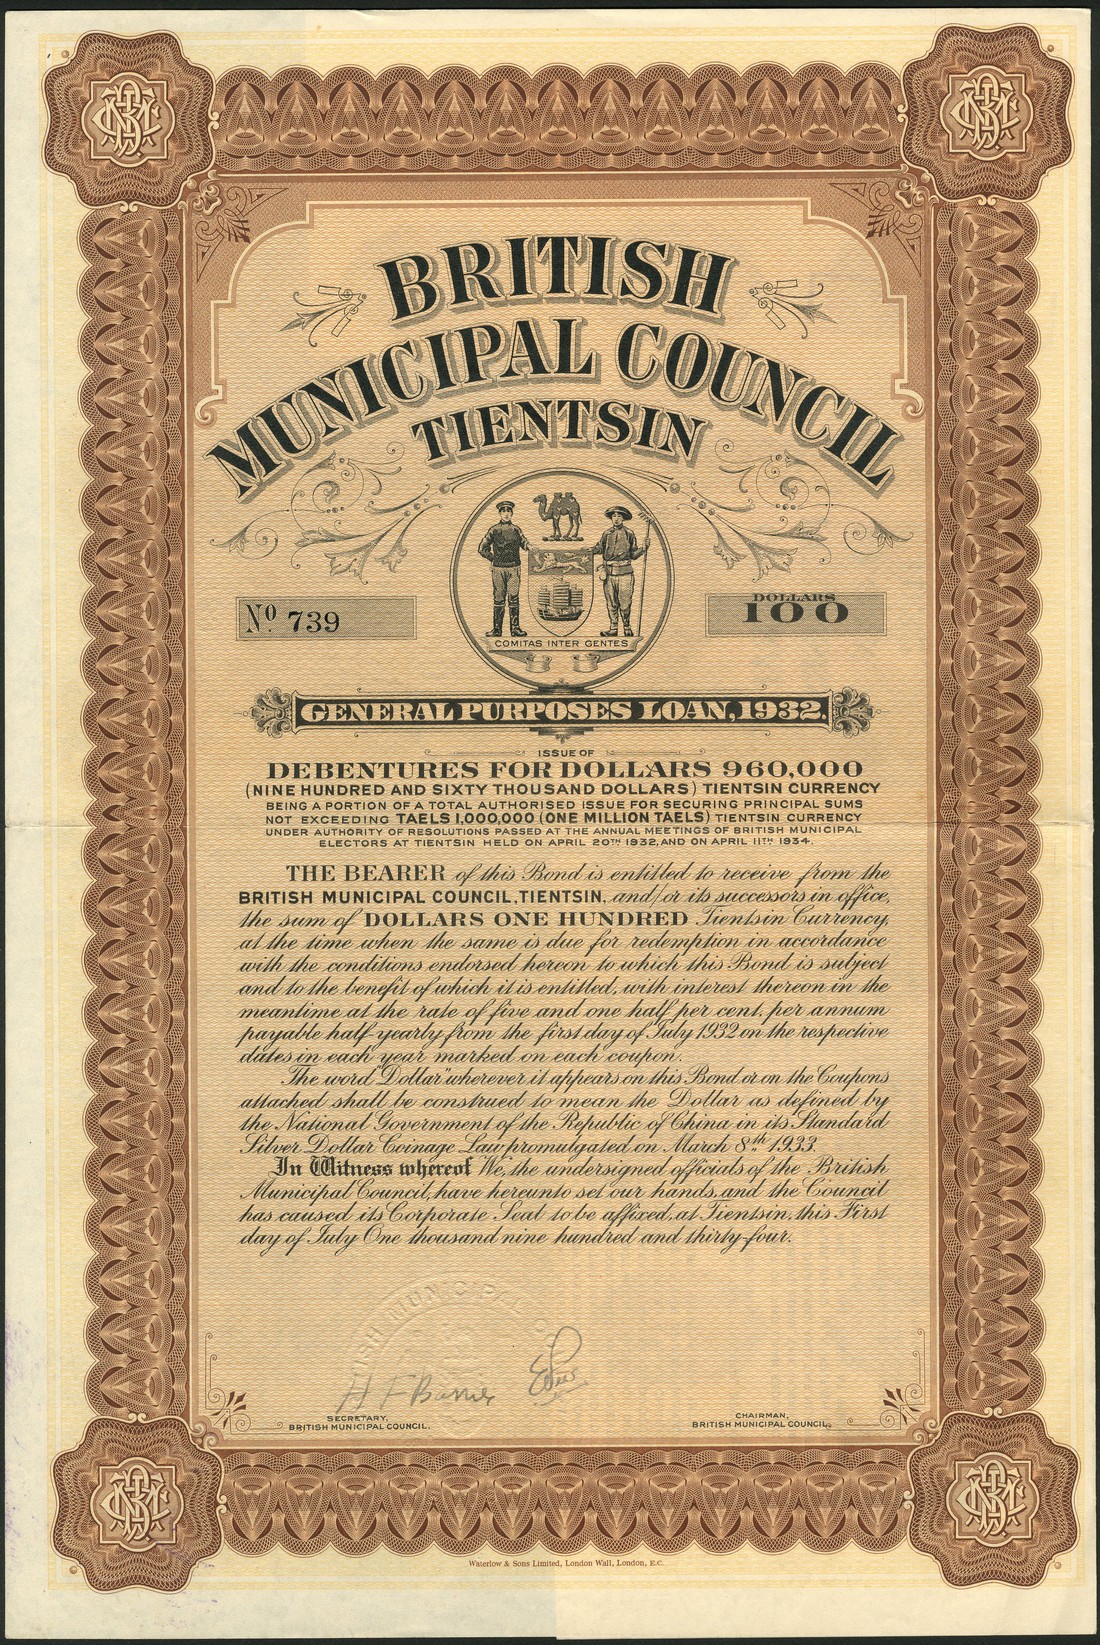 BRITISH
MUNICIPAL COUNCIL
TIENTSIN
No. 739
DOLLARS
100
COMITAS INTER GENTES
GENERAL PURPOSES LOAN, 1932.
ISSUE OF
DEBENTURES FOR DOLLARS 960,000
(NINE HUNDRED AND SIXTY THOUSAND DOLLARS) TIENTSIN CURRENCY
BEING A PORTION OF A TOTAL AUTHORISED ISSUE FOR SECURING PRINCIPAL SUMS
NOT EXCEEDING TAELS 1,000,000 (ONE MILLION TAELS) TIENTSIN CURRENCY
UNDER AUTHORITY OF RESOLUTIONS PASSED AT THE ANNUAL MEETINGS OF BRITISH MUNICIPAL
ELECTORS AT TIENTSIN HELD ON APRIL 20TH 1932, AND ON APRIL 11TH 1934.
THE BEARER of this Bond is entitled to receive from the
BRITISH MUNICIPAL COUNCIL, TIENTSIN, and/or its successors in office,
the sum of DOLLARS ONE HUNDRED Tientsin Currency,
at the time when the same is due for redemption in accordance
with the conditions endorsed hereon to which this Bond is subject
and to the benefit of which it is entitled, with interest thereon in the
meantime at the rate of five and one half per cent. per annum
payable half-yearly from the first day of July 1932 on the respective
dates in each year marked on each coupon.
The word "Dollar" wherever it appears on this Bond or on the Coupons
attached shall be construed to mean the Dollar as defined by
the National Government of the Republic of China in its Standard
Silver Dollar Coinage Law promulgated on March 8th 1933.
In Witness whereof We, the undersigned officials of the British
Municipal Council, have hereunto set our hands, and the Council
has caused its Corporate Seal to be affixed, at Tientsin, this First
day of July One thousand nine hundred and thirty-four.
H F Barnes
SECRETARY,
BRITISH MUNICIPAL COUNCIL.
CHAIRMAN,
BRITISH MUNICIPAL COUNCIL.
Waterlow & Sons Limited, London Wall, London, E.C.